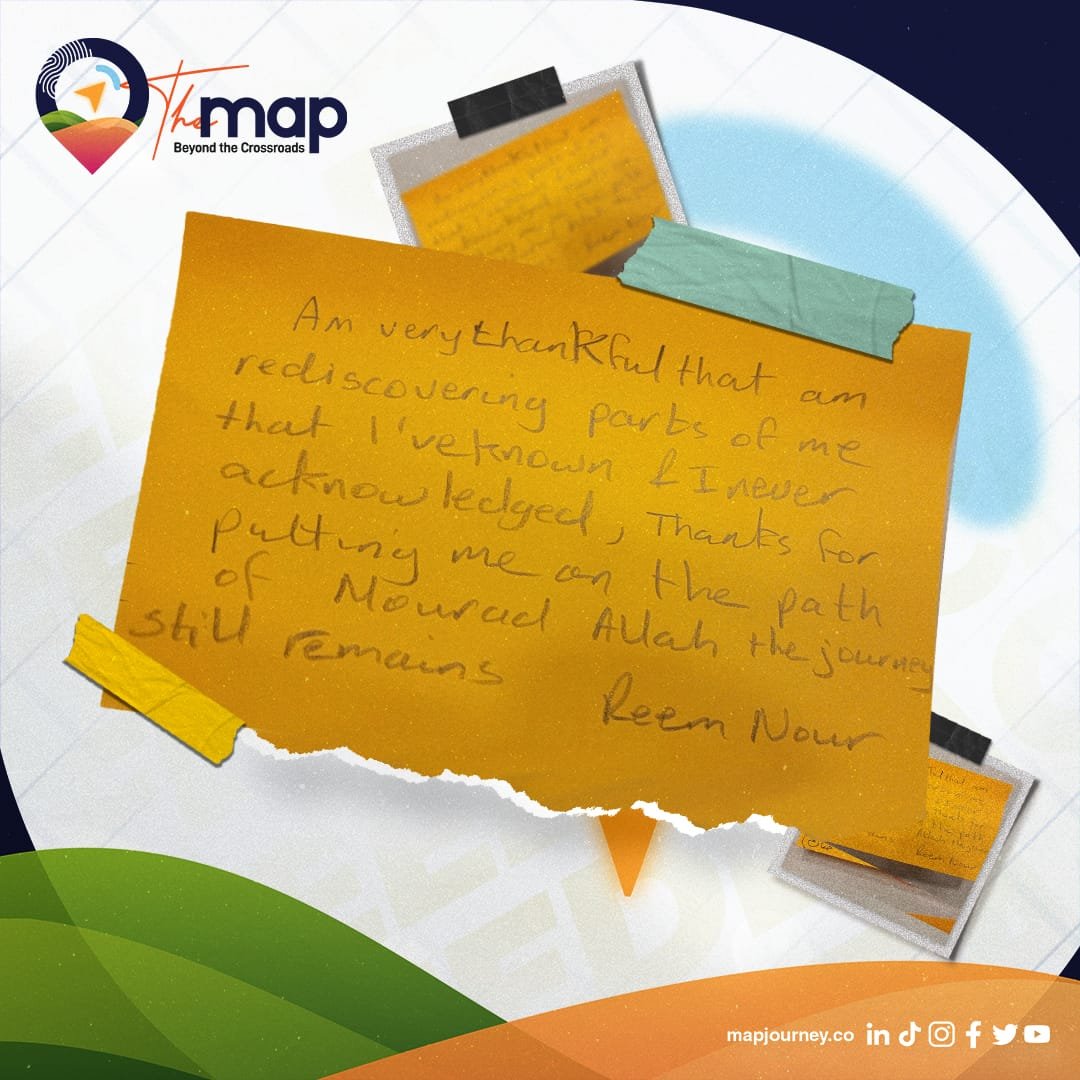 The map
Beyond the Crossroads
Am very thankful that am
rediscovering parts of me
that I've known & I never
acknowledged, Thanks for
putting me on the path
of Mourad Allah the journey
still remains
Reem Nour
mapjourney.co